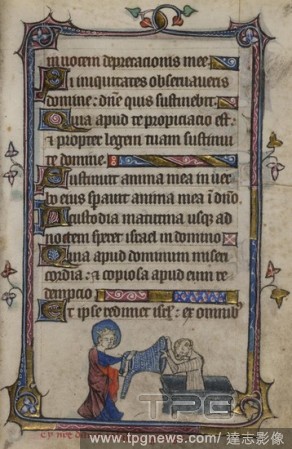 in vocem deprecacionis mee
Si iniquitates observaveris
domine: dñe quis sustinebit:
Quia apud te propiciacio est:
& propter legem tuam sustinui
te domine
Sustinuit anima mea in ver
bo eius speravit anima mea i dño.
A custodia matutina usq; ad
noctem speret israel in domino
Quia apud dominum miseri
cordia: & copiosa apud eum re
dempcio
Et ipse redimet isrl: ex omnib'
TPG
www.tpgnews.com / 達志影像